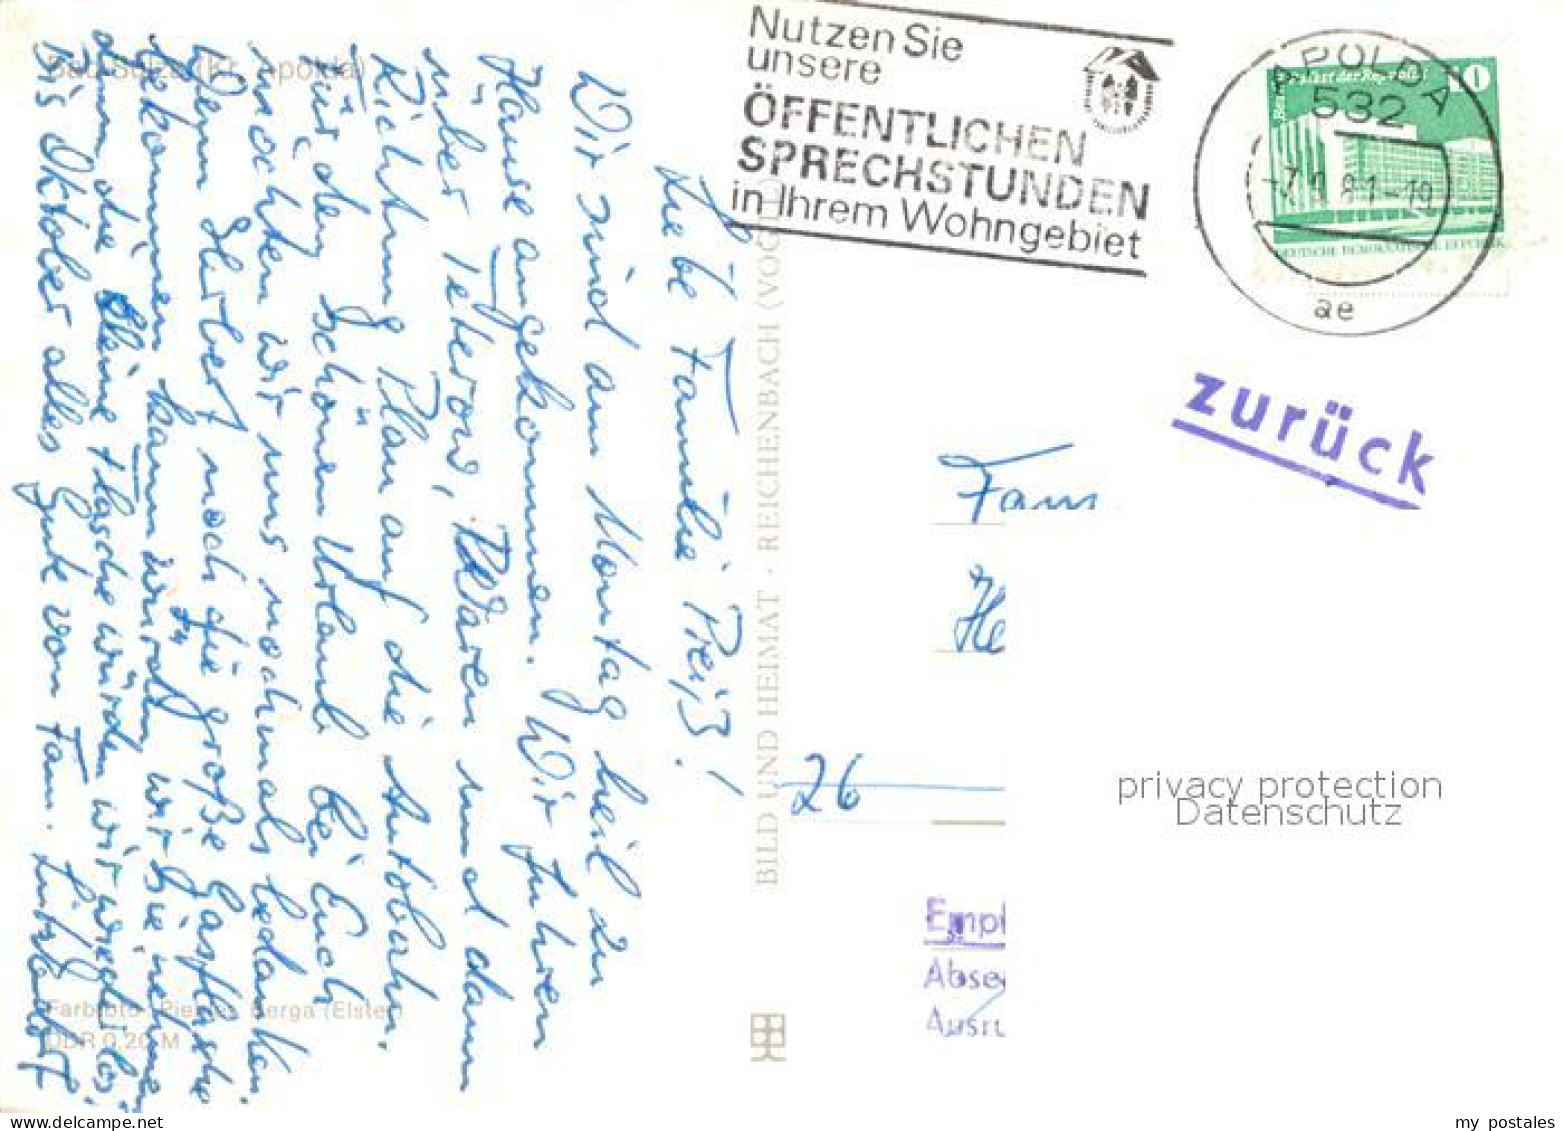 Bad Sulza (Kr. Apolda)
Liebe Familie Preiß!
Wir sind am Montag heil zu
Hause angekommen. Wir fuhren
über Teterow, Waren und dann
Richtung Plau auf die Autobahn.
Für den schönen Urlaub bei Euch
möchten wir uns nochmals bedanken.
Wenn Herbert noch die große Gasflasche
bekommen kann würden wir sie nehmen
denn die kleine Flasche würden wir wieder los.
Bis Oktober alles Gute von Fam.
Farbfoto: Berga (Elster)
DDR 0,20 M
BILD UND HEIMAT · REICHENBACH (VOGTL
Nutzen Sie
unsere
ÖFFENTLICHEN
SPRECHSTUNDEN
in Ihrem Wohngebiet
APOLDA
532
81-19
ae
10
der Republik
DEUTSCHE DEMOKRATISCHE REPUBLIK
zurück
Fam.
He
26
Empf
Abse
Ausru
privacy protection
Datenschutz
my postales